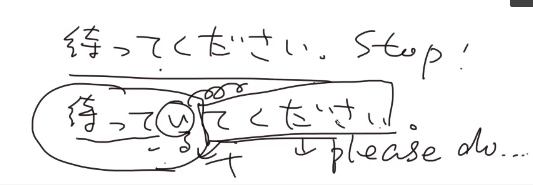 待ってください。Stop!
待っていてください。
↓ please do...